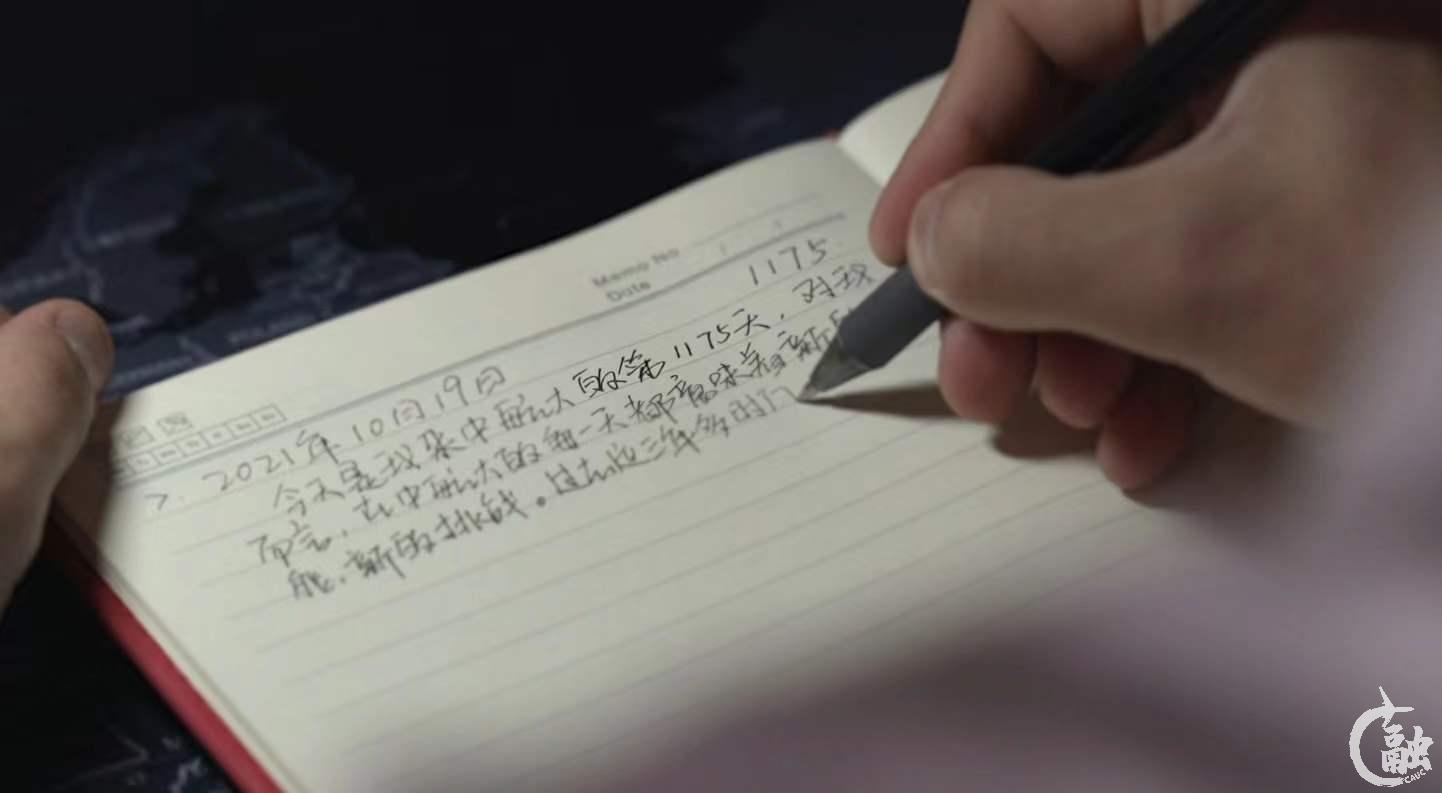 Memo No
Date
1175
7. 2021年10月19日
今天是我来中航大的第1175天，对我
而言，在中航大的每一天都意味着新的
能、新的挑战。过去这三年多的
融
CAUC